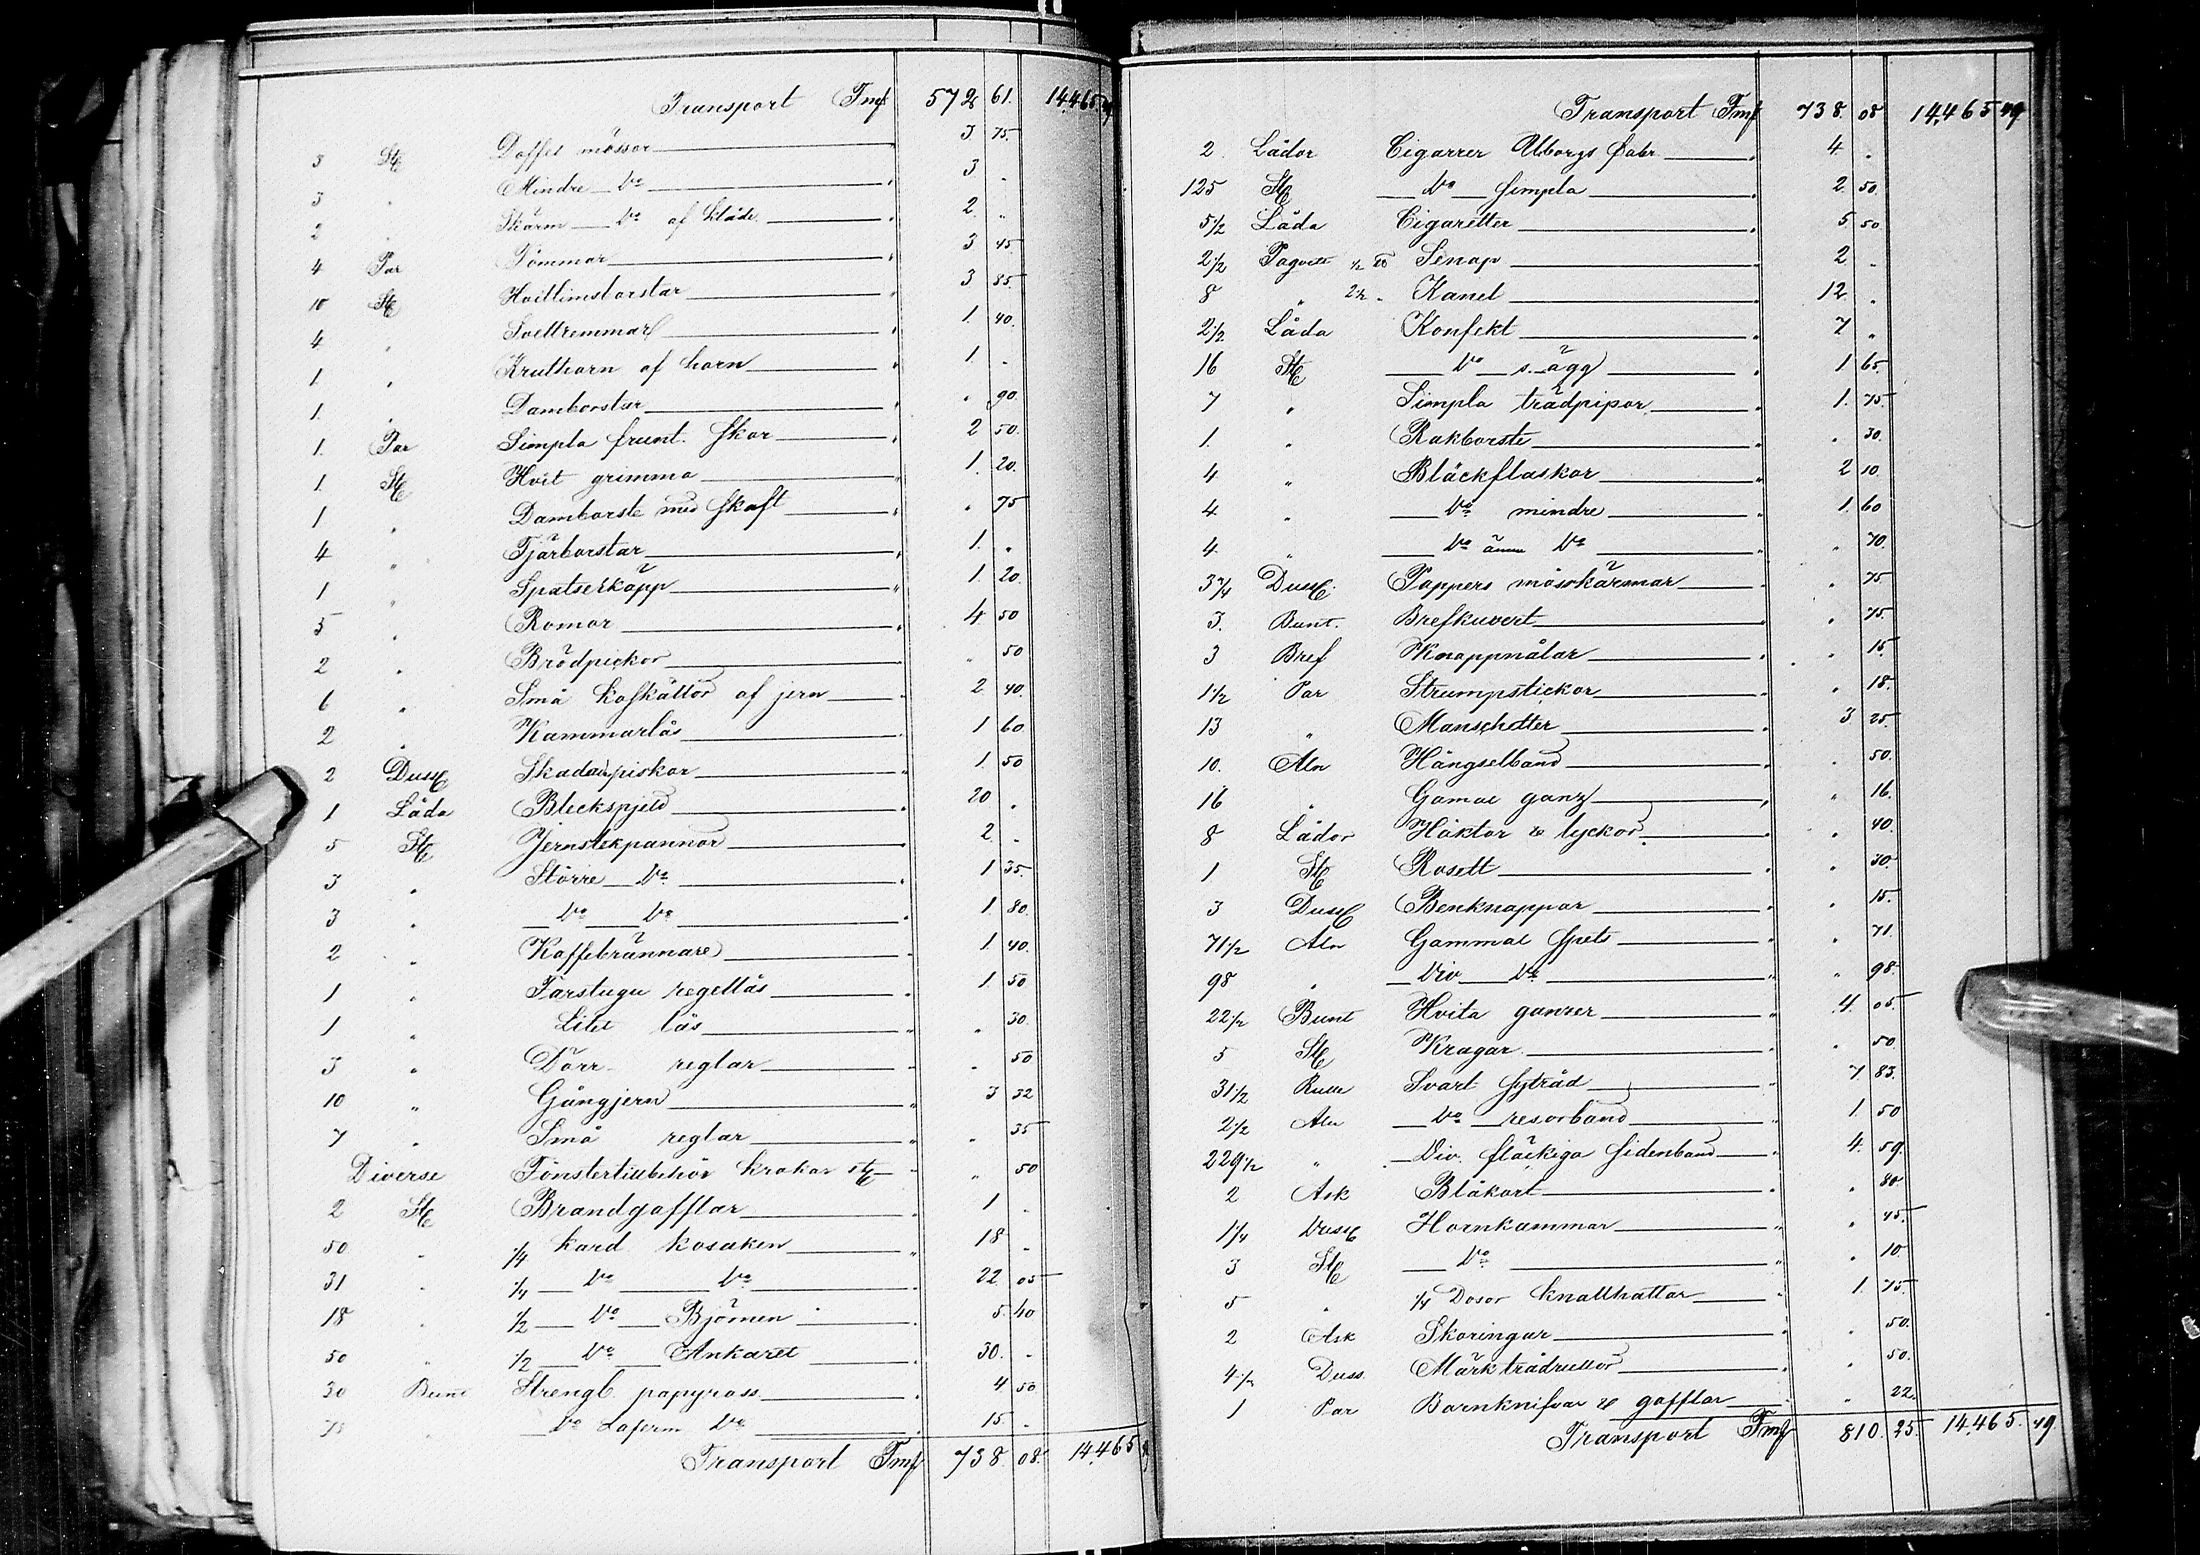 Transport Fmk 572 61. 14,465
3 St Doffel mössor 3 75
3 " Mindre Do 3 "
2 " Skärm Do af kläde 2 "
4 Par Tömmar 3 45
10 St Hvitlimsborstar 3 85
4 " Svettremmar 1. 40.
1. " Kruthorn af horn 1 "
1. " Damborstar " 90
1. Par Simpla frunt. skor 2 50.
1. St Hvit grimma 1. 20.
1 " Damborste med skaft " 75
4 " Tjärborstar 1. "
1 " Spatserkäpp 1. 20.
5 " Romar 4 50
2 " Brödpickor " 50
6 " Små kofkättor af jern 2 40.
2 " Kammarlås 1 60
2 Duss piskor 1. 50
1 Låda Bleckspjeld 20 "
5 St Jernstekpannor 2 "
3 " Större Do 1 35.
3 " Do Do 1. 80.
2 " Kaffebrännare 1. 40.
1 " Farstugu regellås 1 50
1 " Litet lås " 30.
3 " Dörr reglar " 50
10 " Gångjern 3 32
7 " Små reglar " 35
Diverse Fönstertillbehör krokar etc " 50
2 St Brandgafflar 1 "
50 " 1/4 kard kosaken 18 "
31 " 1/4 Do Do 22 05
18 " 1/2 Do Björnen 5. 40
50 " 1/2 Do Ankaret 30. "
30 Bunt Strengb. papyross 4 50
75 " Do Laferm Do 15 "
Transport Fmk 738 08. 14,465
Transport Fmk 738. 08 14,465 49
2 Lådor Cigarrer Wborgs Fabr 4. "
125 St Do simpla 2. 50.
5 1/2 Låda Cigaretter 5 50
2 1/2 Paquett 1/2 Senap 2 "
8 " 2 1/2 " Kanel 12 "
2 1/2 Låda Konfekt 7 "
16 St Do s. ägg 1 65.
7 " Simpla trädpipor 1. 75.
1. " Rakborste " 30.
4 " Bläckflaskor 2 10.
4 " Do mindre 1. 60
4. " Do ännu Do " 70.
3 3/4 Duss Pappers mösskärmar " 75
3. Bunt. Brefkuvert " 75.
3 Bref Knappnålar " 15.
1 1/2 Par Strumpstickor " 18.
13 " Manschetter 3 25.
10. Aln Hängselband " 50.
16 " Gamal ganz " 16.
8 Lådor Häktor & lyckor " 40.
1 St Rosett " 30.
3 Duss Benknappar " 15.
71 1/2 Aln Gammal spets " 71.
98 " Div Do " 98.
22 1/2 Bunt Hvita ganser 4. 05
5 St Kragar " 50.
31 1/2 Rulle Svart sytråd 7 83.
2 1/2 Aln Do resorband 1. 50
229 1/2 " Div. fläckiga sidenband 4. 59.
2 Ask Blåkort " 80
1 1/4 Duss Hornkammar " 45.
3 St Do " 10
5 " 1/4 Dosor knallhattar 1. 75.
2 Ask Skoringar " 50.
4 1/2 Duss Märktrådrullor " 50.
1 Par Barnknifvar & gafflar " 22.
Transport Fmk 810. 25. 14,465. 49.